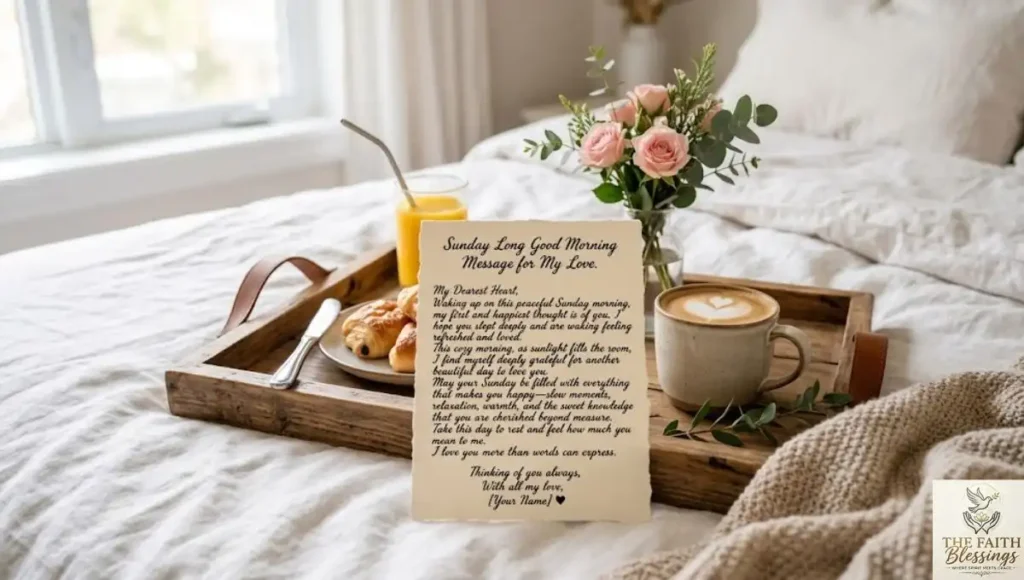 Sunday Long Good Morning
Message for My Love.
My Dearest Heart,
Waking up on this peaceful Sunday morning,
my first and happiest thought is of you. I
hope you slept deeply and are waking feeling
refreshed and loved.
This cozy morning, as sunlight fills the room,
I find myself deeply grateful for another
beautiful day to love you.
May your Sunday be filled with everything
that makes you happy—slow moments,
relaxation, warmth, and the sweet knowledge
that you are cherished beyond measure.
Take this day to rest and feel how much you
mean to me.
I love you more than words can express.
Thinking of you always,
With all my love,
[Your Name] ♥
THE FAITH
Blessings